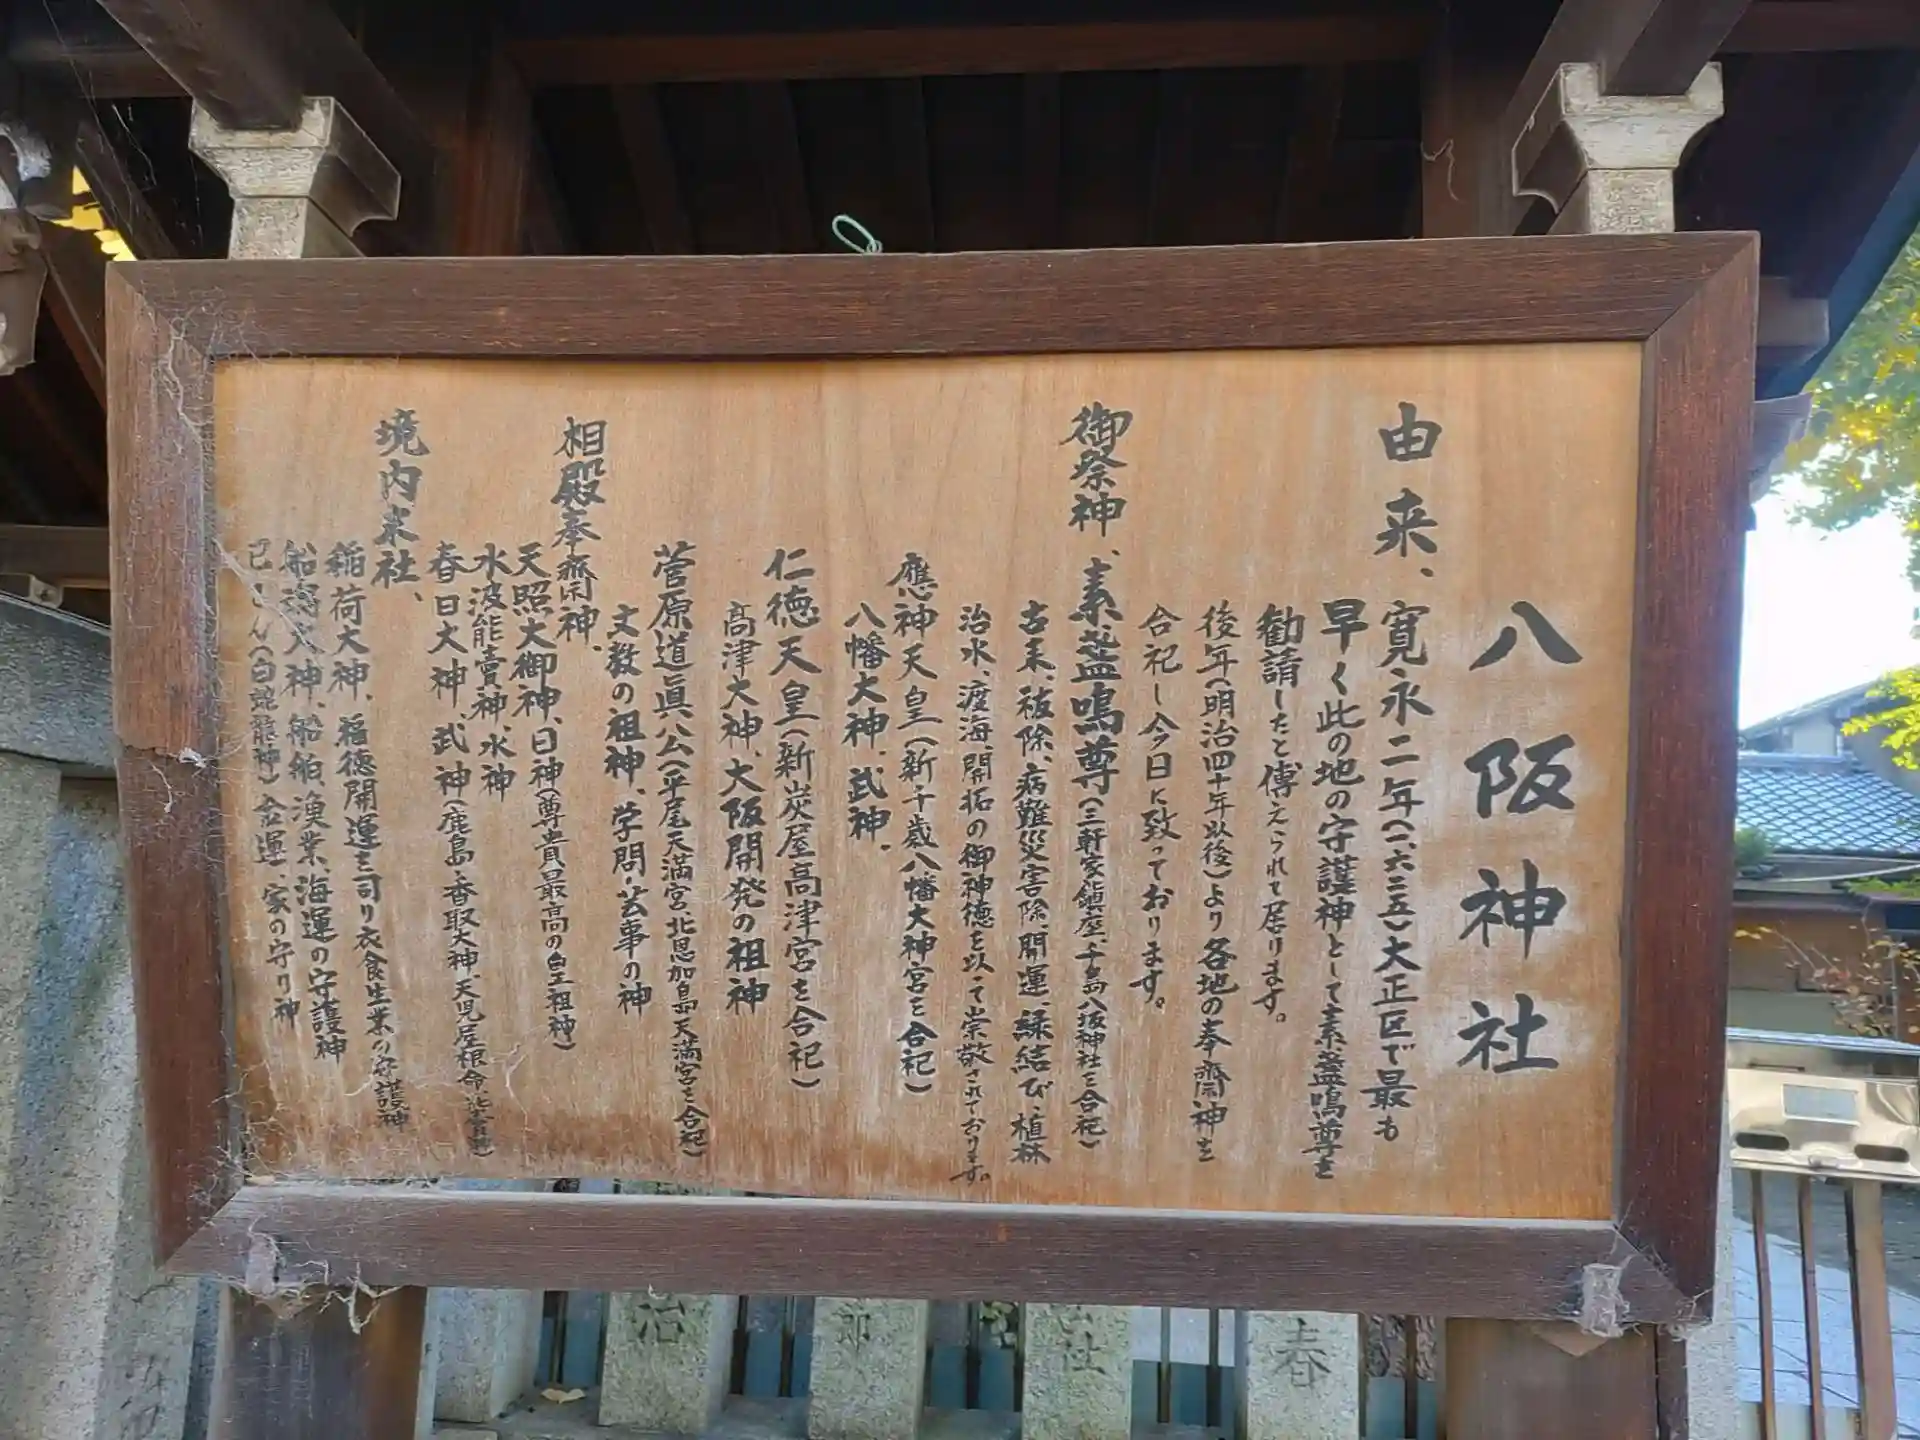 八阪神社
由来、寛永二年(一、六二五)大正区で最も
早く此の地の守護神として素盞嗚尊を
勧請したと傳えられて居ります。
後年(明治四十年以後)より各地の奉齋神を
合祀し今日に致っております。
御祭神、素盞嗚尊(三軒家鎮座、千島八坂神社を合祀)
古来、祓除、病難災害除、開運、縁結び、植林
治水、渡海、開拓の御神徳を以て崇敬されております。
應神天皇(新千歳八幡大神宮を合祀)
八幡大神、武神、
仁徳天皇(新炭屋高津宮を合祀)
高津大神、大阪開発の祖神
菅原道眞公(平尾天満宮、北恩加島天満宮を合祀)
文教の祖神、学問、芸事の神
相殿奉齋神、
天照大御神、日神(尊貴最高の皇祖神)
水波能賣神、水神
春日大神、武神(鹿島、香取大神、天児屋根命
境内末社、
稲荷大神、福徳開運を司り衣食生業の守護神
船渦大神、船舶、漁業、海運の守護神
巳さん(白蛇龍神)金運、家の守り神
治
郎
社
春